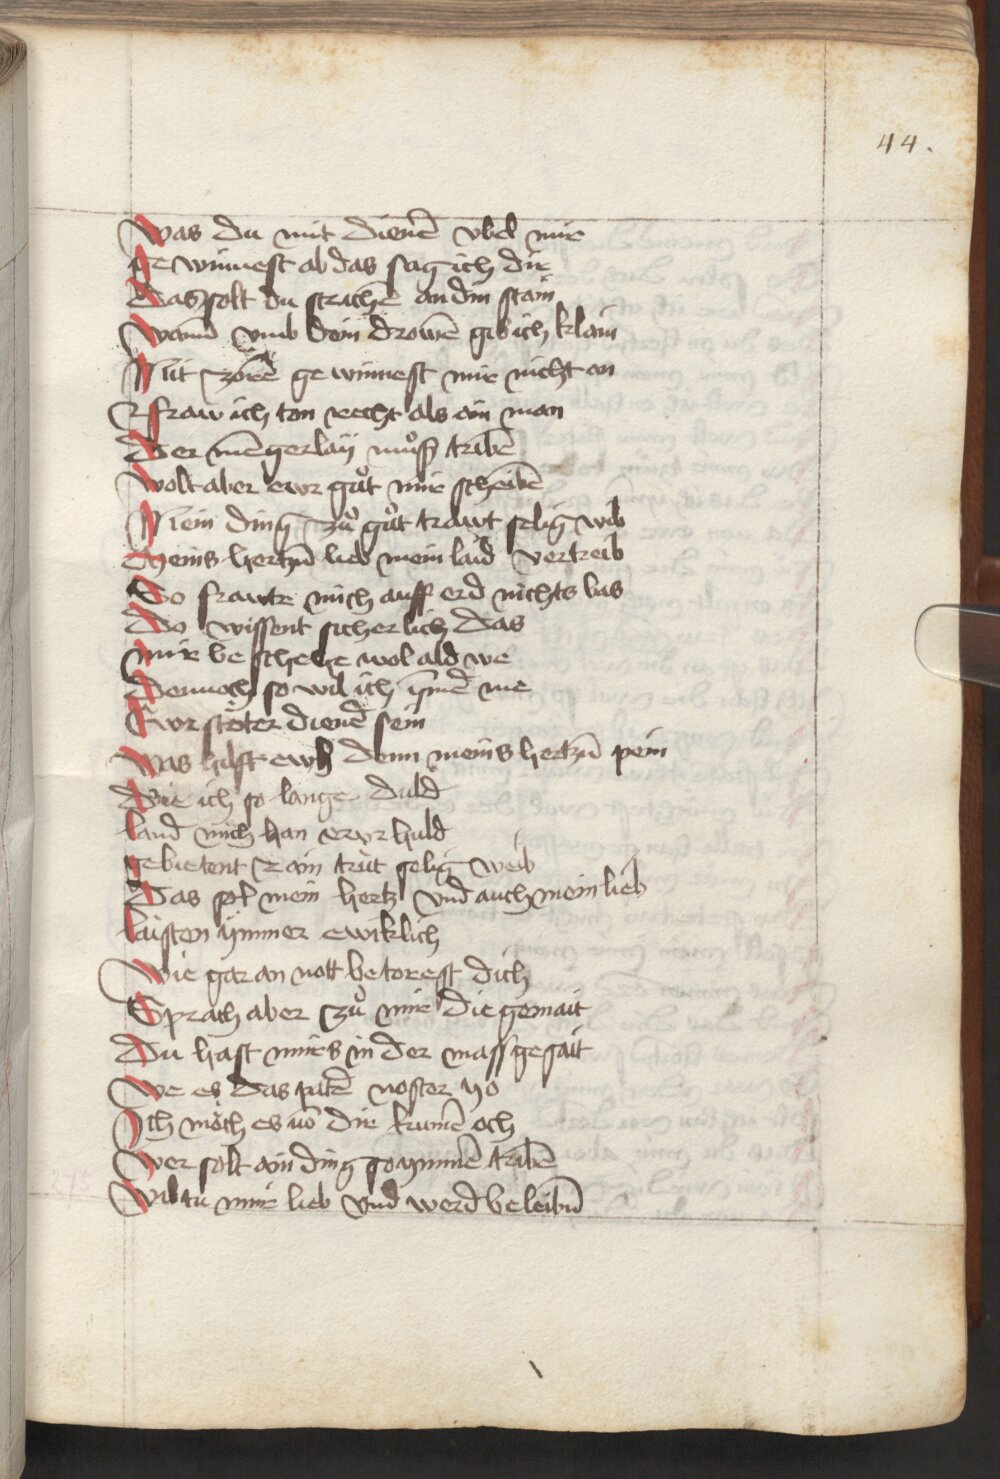 44.
Was du mit dienē vbel mir
ge winnest ab das sag ich dir
Das solt du strichē an din stain
Wann̄ vmb dein drowē gib ich klain
Mit zorē ge winnest mir nicht an
O fraw ich ton recht als ain man
Der mēgerlaÿ muͦß tribē
Wolt aber ewr guͦt mir schribē
Mein ding zuͦ guͦt trawt selig wib
Meins hertzn̄ lieb mein laid vertreib
So frawte mich auff erd nichts bas
Do wissent sicherlich das
mir be schehe wol ald we
Dennoch so wil ich ÿmē me
Ewr stäter dienē sein
was hilft ewch denn meins hertzn̄ pein
Die ich so lange duld
land mich han ewr huld
gebietent rain trüt selig weib
Das sol mein hertz vnd auch mein lieb
laisten ÿmmer ewiklich
Wie gar an nott betorest dich
Sprach aber zuͦ mir die gemait
Du hast mirs in der mass gesait
we es das patē noster
Ich möch es vō dir kumē och
wer solt ain ding so ÿmmē tribē
Wiltu mir lieb vnd werd beleibn̄
275